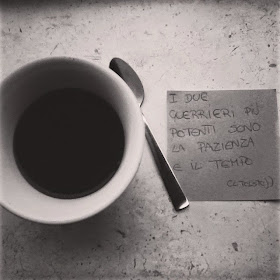 I DUE
GUERRIERI PIÙ
POTENTI SONO
LA PAZIENZA
E IL TEMPO
(L. TOLSTOJ)